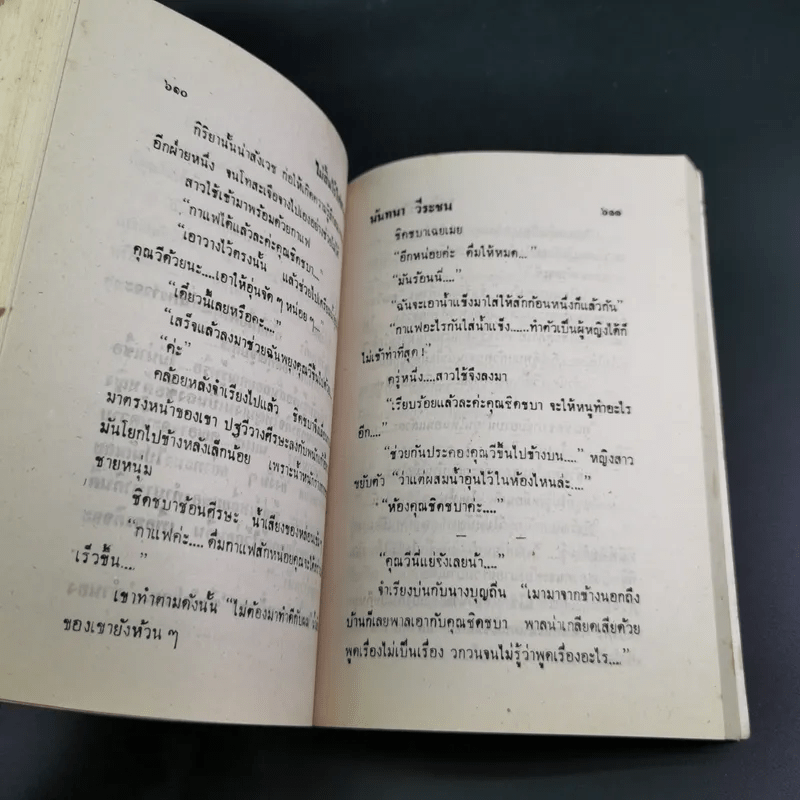 ๖๑๐
กิริยานั้นน่าสังเวช ก่อให้เกิดความรู้สึก
อีกฝ่ายหนึ่ง จนโทสะเจือจางไปเองอย่างช่วยไม่ได้
สาวใช้เข้ามาพร้อมด้วยกาแฟ
“กาแฟได้แล้วละค่ะคุณชิดชบา...”
“เอาวางไว้ตรงนั้น แล้วช่วยไป
คุณวีด้วยนะ....เอาให้อุ่นจัด ๆ หน่อย ๆ...
“เดี๋ยวนี้เลยหรือคะ....”
“เสร็จแล้วลงมาช่วยฉันพยุงคุณวีขึ้นไป
“ค่ะ”
คล้อยหลังจำเรียงไปแล้ว ชิดชบาจึง
มาตรงหน้าของเขา ปฐวีวางศีรษะลงกับพนัก
มันโยกไปข้างหลังเล็กน้อย เพราะน้ำหนัก
ชายหนุ่ม
ชิดชบาช้อนศีรษะ น้ำเสียงของหล่อน
“กาแฟค่ะ.... ดื่มกาแฟสักหน่อยคุณจะได้
เร็วขึ้น....”
เขาทำตามดังนั้น “ไม่ต้องมาทำดีกับผม
ของเขายังห้วน ๆ
นันทนา วีระชน
๖๑๑
ชิดชบาเฉยเมย
“อีกหน่อยค่ะ ดื่มให้หมด...”
“มันร้อนนี่....”
“ฉันจะเอาน้ำแข็งมาใส่ให้สักก้อนหนึ่งก็แล้วกัน”
“กาแฟอะไรกันใส่น้ำแข็ง......ทำตัวเป็นผู้หญิงได้ก็
ไม่เข้าท่าที่สุด !”
ครู่หนึ่ง....สาวใช้จึงลงมา
“เรียบร้อยแล้วละค่ะคุณชิดชบา จะให้หนูทำอะไร
อีก....”
“ช่วยกันประคองคุณวีขึ้นไปข้างบน....” หญิงสาว
ขยับตัว “ว่าแต่ผสมน้ำอุ่นไว้ในห้องไหนล่ะ....”
“ห้องคุณชิดชบาค่ะ....”
“คุณวีนี่แย่จังเลยน้า....”
จำเรียงบ่นกับนางบุญถิ่น “เมามาจากข้างนอกถึง
บ้านก็เลยพาลเอากับคุณชิดชบา พาลน่าเกลียดเสียด้วย
พูดเรื่องไม่เป็นเรื่อง วกวนจนไม่รู้ว่าพูดเรื่องอะไร....”